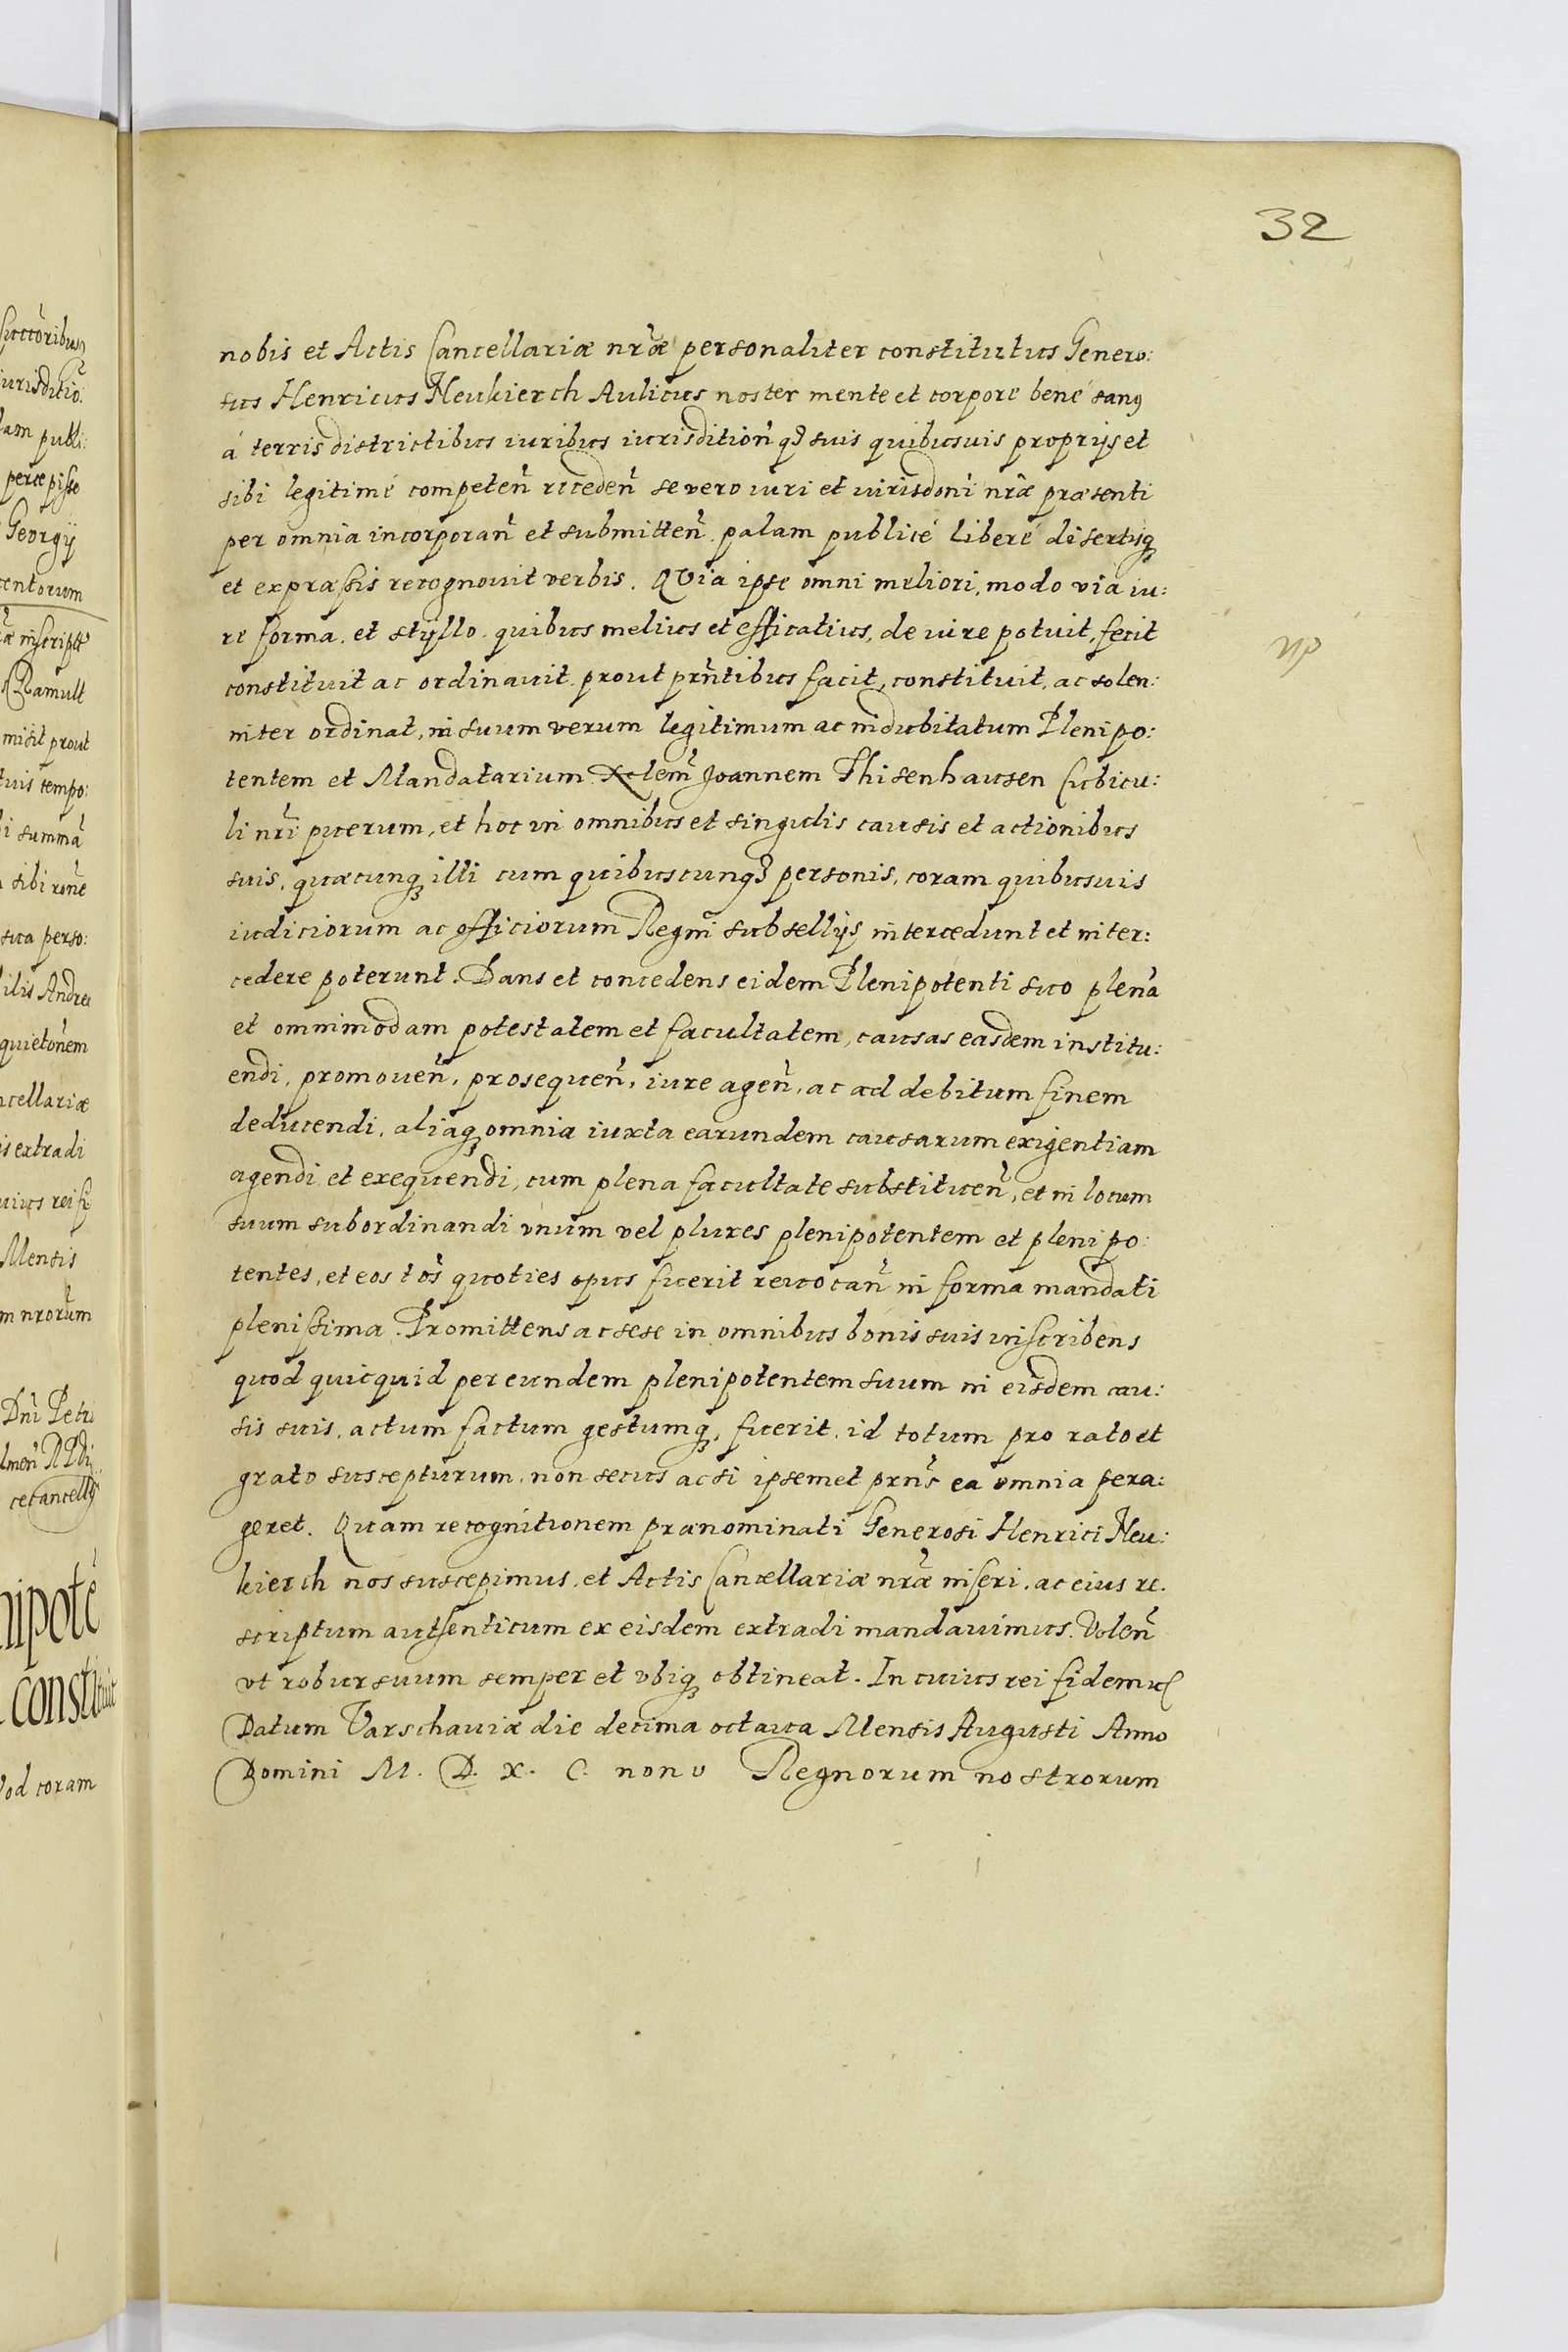 32
nobis et Actis Cancellariæ nr̃æ personaliter constitutus Genero:
sus Henricus Neukierch Aulicus noster mente et corpore bené sanꝰ
á terris districtibus iuribus iurisdition̄ qꝫ suis quibusuis proprijs et
sibi legitimé competen̄ receden̄ se vero iuri et iurisdoni nr̃æ præsenti
per omnia incorporan̄ et submitten̄ palam publicé liberé disertisqꝫ
et expræssis recognouit verbis. QVia ipse omni meliori, modo via iu:
re forma. et styllo. quibus melius et efficatius, de iure potuit, fecit
constituit ac ordinauit. prout prñtibus facit, constituit, ac solen:
niter ordinat, in suum verum legitimum ac indubitatum Plenipo:
tentem et Mandatarium Joannem Thisenhausen Cubicu:
li nr̃i puerum, et hoc in omnibus et singulis causis et actionibus
suis, quæcunqꝫ illi cum quibuscunqꝫ personis, coram quibusuis
iudiciorum ac officiorum Regni subsellijs intercedunt et inter:
cedere poterunt. Dans et concedens eidem Plenipotenti suo plenā
et omnimodam potestatem et facultatem, causas easdem institu:
endi, promouen̄, prosequen̄, iure agen̄, ac ad debitum finem
deducendi, aliaqꝫ omnia iuxta earundem causarum exigentiam
agendi et exequendi, cum plena facultate substituen̄, et in locum
suum subordinandi vnum vel plures plenipotentem et plenipo:
tentes, et eos tōs quoties opus fuerit reuocan̄ in forma mandati
plenissima. Promittens ac sese in omnibus bonis suis inscribens
quod quicquid per eundem plenipotentem suum in eisdem cau:
sis suis, actum factum gestumqꝫ, fuerit, id totum pro rato et
grato suscepturum, non secus ac si ipsemet prñs ea omnia pera:
geret. Quam recognitionem prænominati Generosi Henrici Neu:
kierch nos suscepimus, et Actis Cancellariæ nr̃æ inseri, ac eius re.
scriptum authenticum ex eisdem extradi mandauimus. Volen̄
vt robur suum semper et vbiqꝫ obtineat. In cuius rei fidem
Datum Varschauiæ die decima octaua Mensis Augusti Anno
Domini M. D. X. C. nono Regnorum nostrorum
iurisditio.
perce pisse
Georgij
Ramult
misit prout
tuis tempo:
summā
sibi
sua perso:
ilis
quietõnem
ncellariæ
is extradi
uius rei fi
Mensis
m nrorum
Dn̄i Petri
nipotē
constituit
od coram